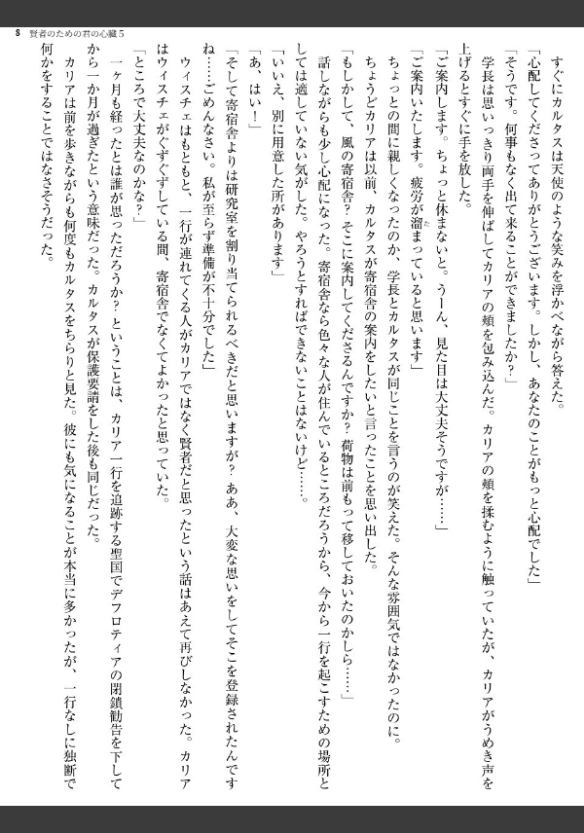 8 賢者のための君の心臓 5
すぐにカルタスは天使のような笑みを浮かべながら答えた。
「心配してくださってありがとうございます。しかし、あなたのことがもっと心配でした」
「そうです。何事もなく出て来ることができましたか?」
学長は思いっきり両手を伸ばしてカリアの頬を包み込んだ。カリアの頬を揉むように触っていたが、カリアがうめき声を
上げるとすぐに手を放した。
「ご案内します。ちょっと休まないと。うーん、見た目は大丈夫そうですが……」
「ご案内いたします。疲労が溜まっていると思います」
ちょっとの間に親しくなったのか、学長とカルタスが同じことを言うのが笑えた。そんな雰囲気ではなかったのに。
ちょうどカリアは以前、カルタスが寄宿舎の案内をしたいと言ったことを思い出した。
「もしかして、風の寄宿舎? そこに案内してくださるんですか? 荷物は前もって移しておいたのかしら……」
話しながらも少し心配になった。寄宿舎なら色々な人が住んでいるところだろうから、今から一行を起こすための場所と
しては適していない気がした。やろうとすればできないことはないけど……。
「いいえ、別に用意した所があります」
「あ、はい!」
「そして寄宿舎よりは研究室を割り当てられるべきだと思いますが? ああ、大変な思いをしてそこを登録されたんです
ね……ごめんなさい。私が至らず準備が不十分でした」
ウィスチェはもともと、一行が連れてくる人がカリアではなく賢者だと思ったという話はあえて再びしなかった。カリア
はウィスチェがぐずぐずしている間、寄宿舎でなくてよかったと思っていた。
「ところで大丈夫なのかな?」
一ヶ月も経ったとは誰が思っただろうか? ということは、カリア一行を追跡する聖国でデフロティアの閉鎖勧告を下して
から一か月が過ぎたという意味だった。カルタスが保護要請をした後も同じだった。
カリアは前を歩きながらも何度もカルタスをちらりと見た。彼にも気になることが本当に多かったが、一行なしに独断で
何かをすることではなさそうだった。